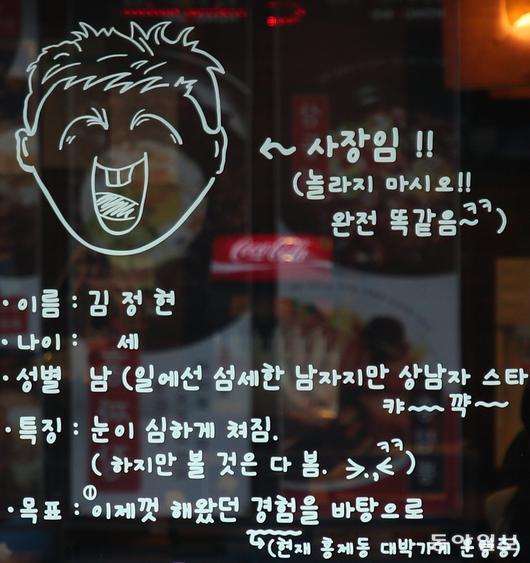 ← 사장임 !!
(놀라지 마시오!!
완전 똑같음~ㅋㅋ)
Coca-Cola
· 이름 : 김정현
· 나이 : 세
· 성별 남 (일에선 섬세한 남자지만 상남자 스타
캬~~ 깍~
· 특징 : 눈이 심하게 쳐짐.
(하지만 볼 것은 다 봄. >.,< ㅋㅋ)
· 목표 : ① 이제껏 해왔던 경험을 바탕으로
(현재 홍제동 대박가게 운영중)
동아일보